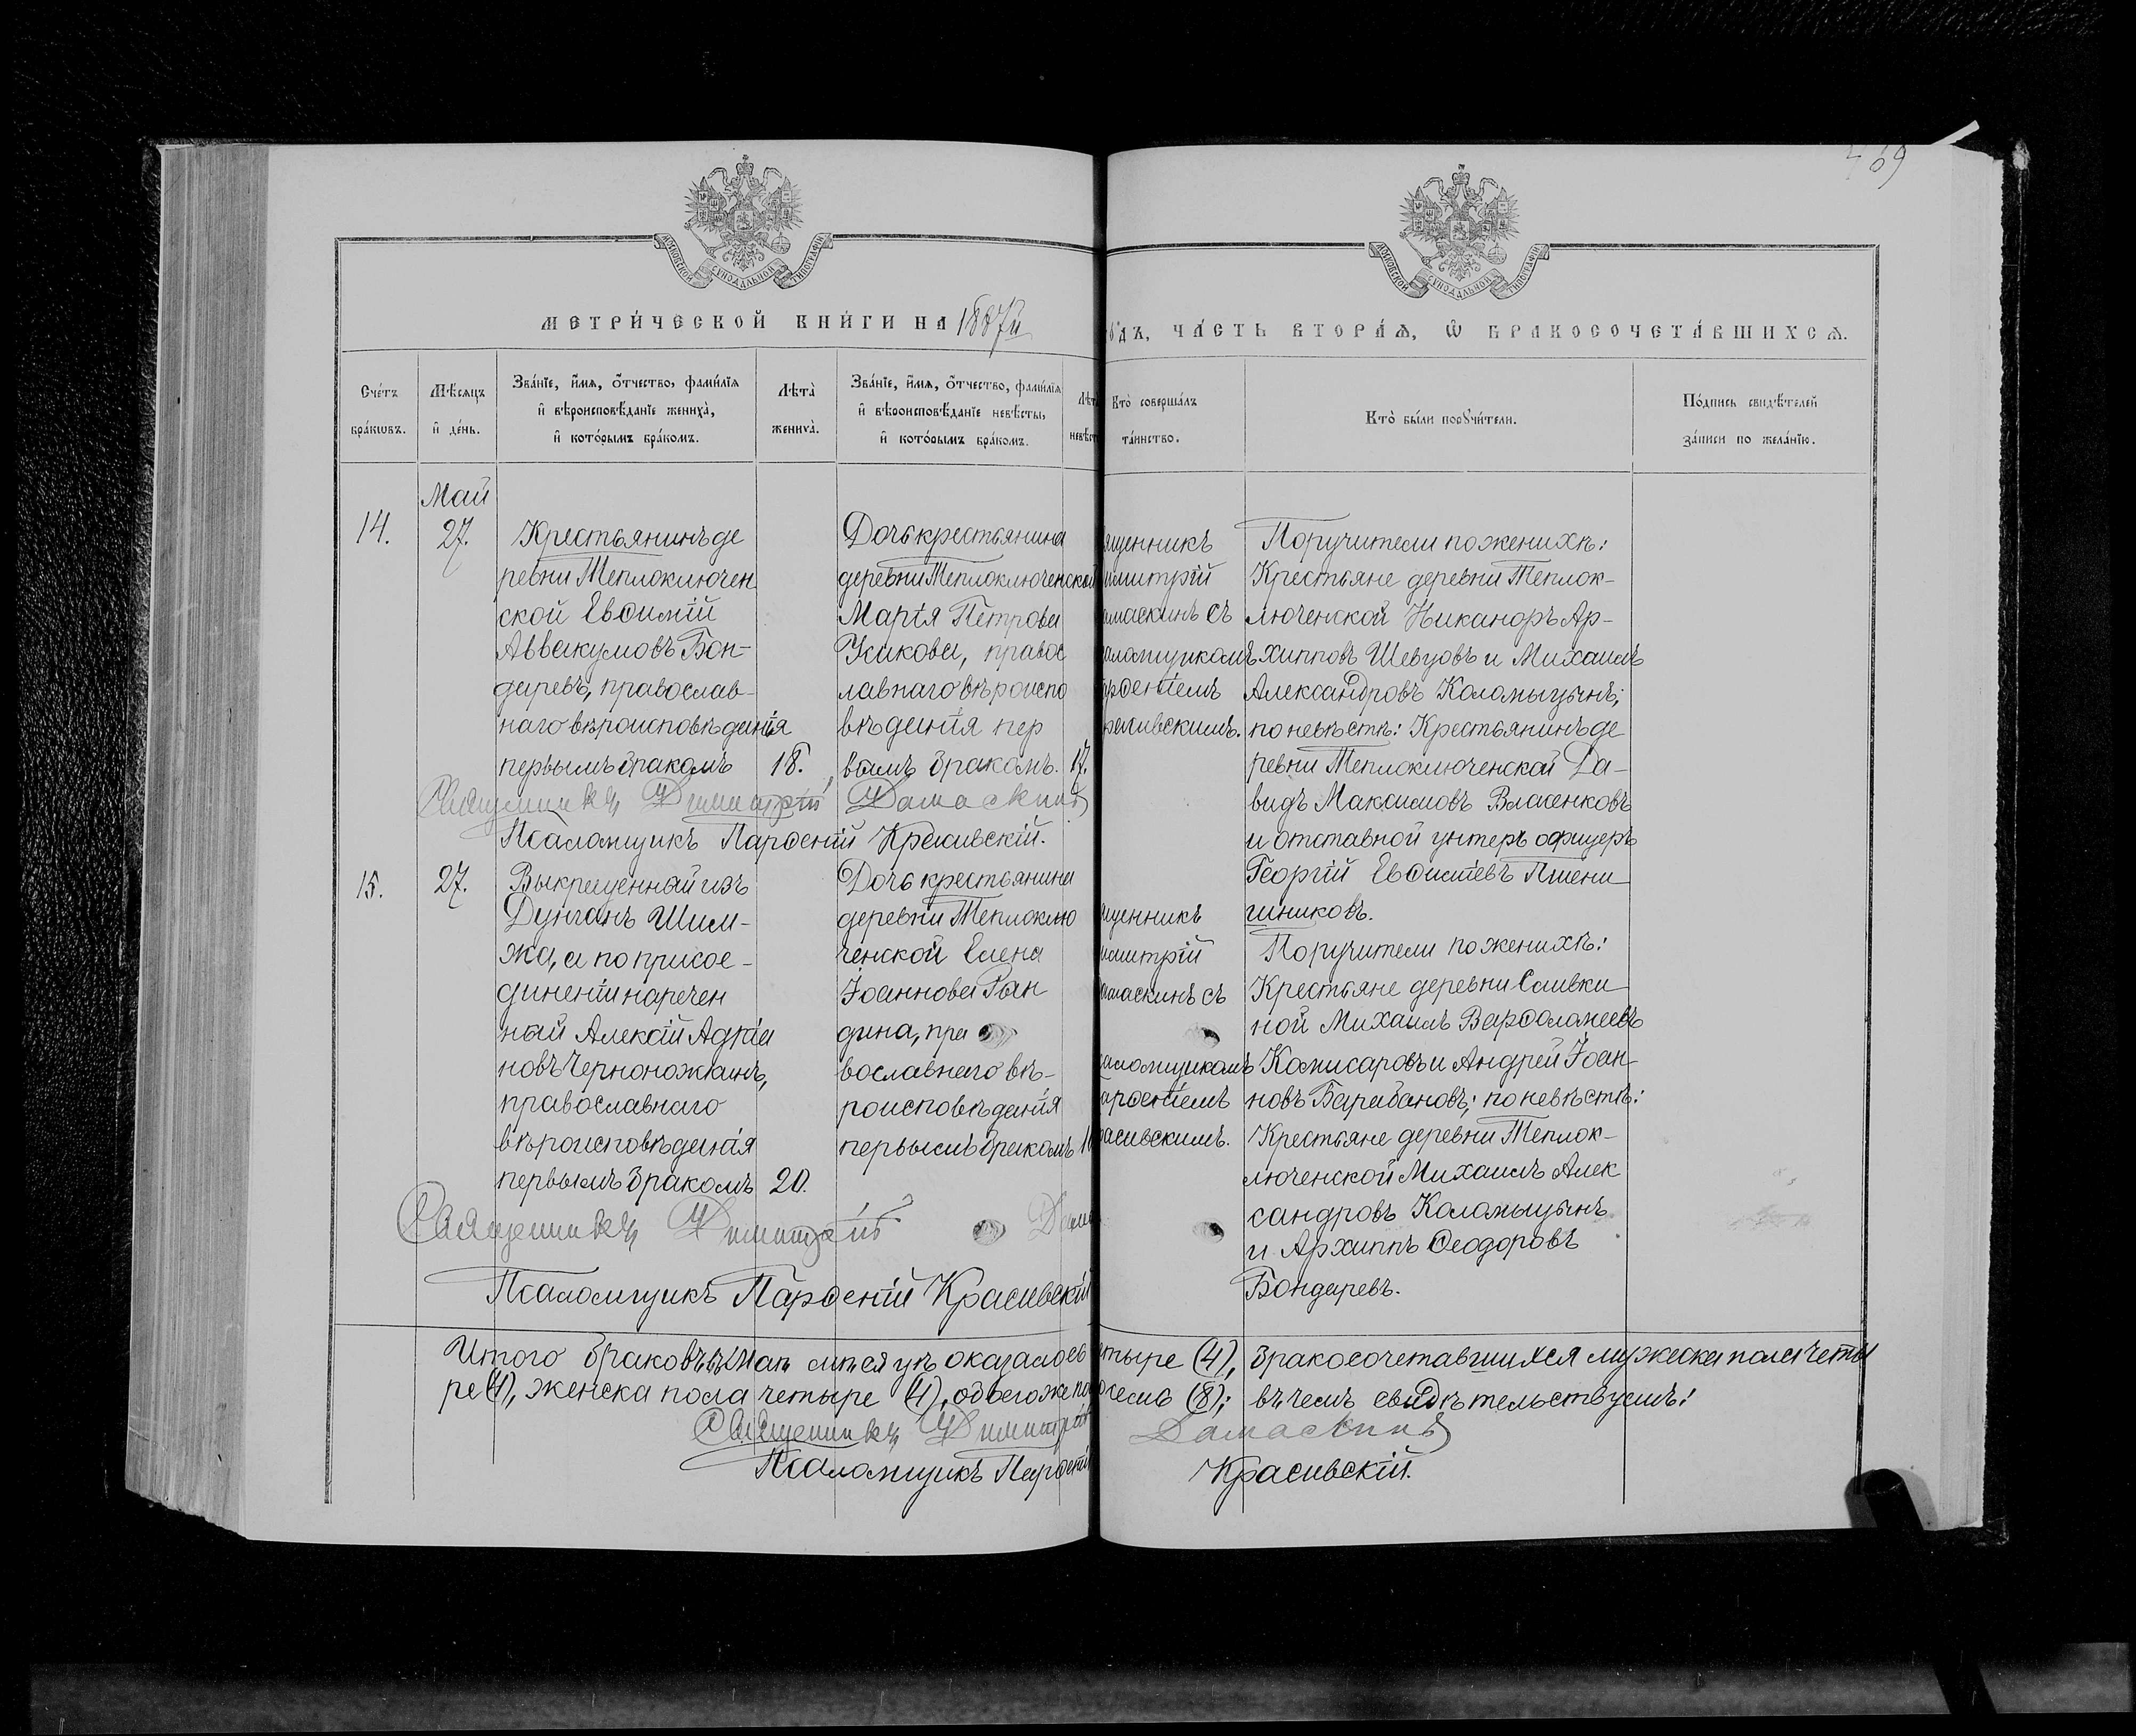 469
МОСКОВСКОЙ СѴНОДАЛЬНОЙ ТИПОГРАФІИ
МОСКОВСКОЙ СѴНОДАЛЬНОЙ ТИПОГРАФІИ
МЕТРИ́ЧЕСКОЙ КНИ́ГИ НА 1887й
ЧА́СТЬ ВТОРА́Ѧ, Ѡ҆ БРАКОСОЧЕТА́ВШИХСѦ.
Сче́тъ
бра́кѡвъ.
Мѣ́сяцъ
и҆ де́нь.
Зва́нїе, и҆́мя, ѻ҆́тчество, фами́лїя
и҆ вѣроисповѣ́данїе жениха̀,
и҆ кото́рымъ бра́комъ.
Лѣта̀
жениха̀.
Зва́нїе, и҆́мя, ѻ҆́тчество, фами́лїя
и҆ вѣроисповѣ́данїе невѣ́сты,
и҆ кото́рымъ бра́комъ.
Кто̀ соверша́лъ
та́инство.
Кто̀ бы́ли порꙋчи́тели.
По́дпись свидѣ́телей
за́писи по жела́нїю.
14.
Май
27.
Крестьянинъ де
ревни Теплоключен
ской Евѳимій
Аввакумовъ Бон-
даревъ, православ-
наго вѣроисповѣданія
первымъ бракомъ
18.
Дочь крестьянина
деревни Теплоключенской
Марія Петрова
Усикова, правос
лавнаго вѣроиспо
вѣданія пер
вымъ бракомъ.
17.
ященникъ
имитрій
амаскинъ съ
аломщикомъ
арѳеніемъ
расивскимъ.
Поручители по женихѣ:
Крестьяне деревни Теплок-
люченской Никаноръ Ар-
хиповъ Шевцовъ и Михаилъ
Александровъ Коломыцынъ;
по невѣстѣ: Крестьянинъ де
ревни Теплоключенской Да-
видъ Максимовъ Власенковъ
и отставной унтеръ офицеръ
Георгій Евѳиміевъ Пшени
шниковъ.
Священникъ Димитрій Дамаскинъ
Псаломщикъ Парѳеній Красивскій.
15.
27.
Выкрещенный изъ
Дунганъ Шим-
жа, а по присое-
диненіи наречен
ный Алексій Адріа
новъ Черноножкинъ,
православнаго
вѣроисповѣданія
первымъ бракомъ
20.
Дочь крестьянина
деревни Теплоклю
ченской Елена
Іоаннова Ган
дина, пра
вославнаго вѣ-
роисповѣданія
первымъ бракомъ
ященникъ
имитрій
амаскинъ съ
саломщикомъ
арѳеніемъ
расивскимъ.
Поручители по женихѣ:
Крестьяне деревни Сливки
ной Михаилъ Варѳоломеевъ
Комисаровъ и Андрей Іоан-
новъ Барабановъ; по невѣстѣ:
Крестьяне деревни Теплок-
люченской Михаилъ Алек
сандровъ Коломыцынъ
и Архиппъ Ѳеодоровъ
Бондаревъ.
Священникъ Димитрій
Псаломщикъ Парѳеній Красивскій
Итого браковъ въ Маѣ мѣсяцѣ оказалось четыре (4), бракосочетавшихся мужеска пола четы
ре (4), женска пола четыре (4), обоего же пола восемь (8); въ чемъ свидѣтельствуемъ:
Священникъ Димитрій Дамаскинъ
Псаломщикъ Парѳеній Красивскій.